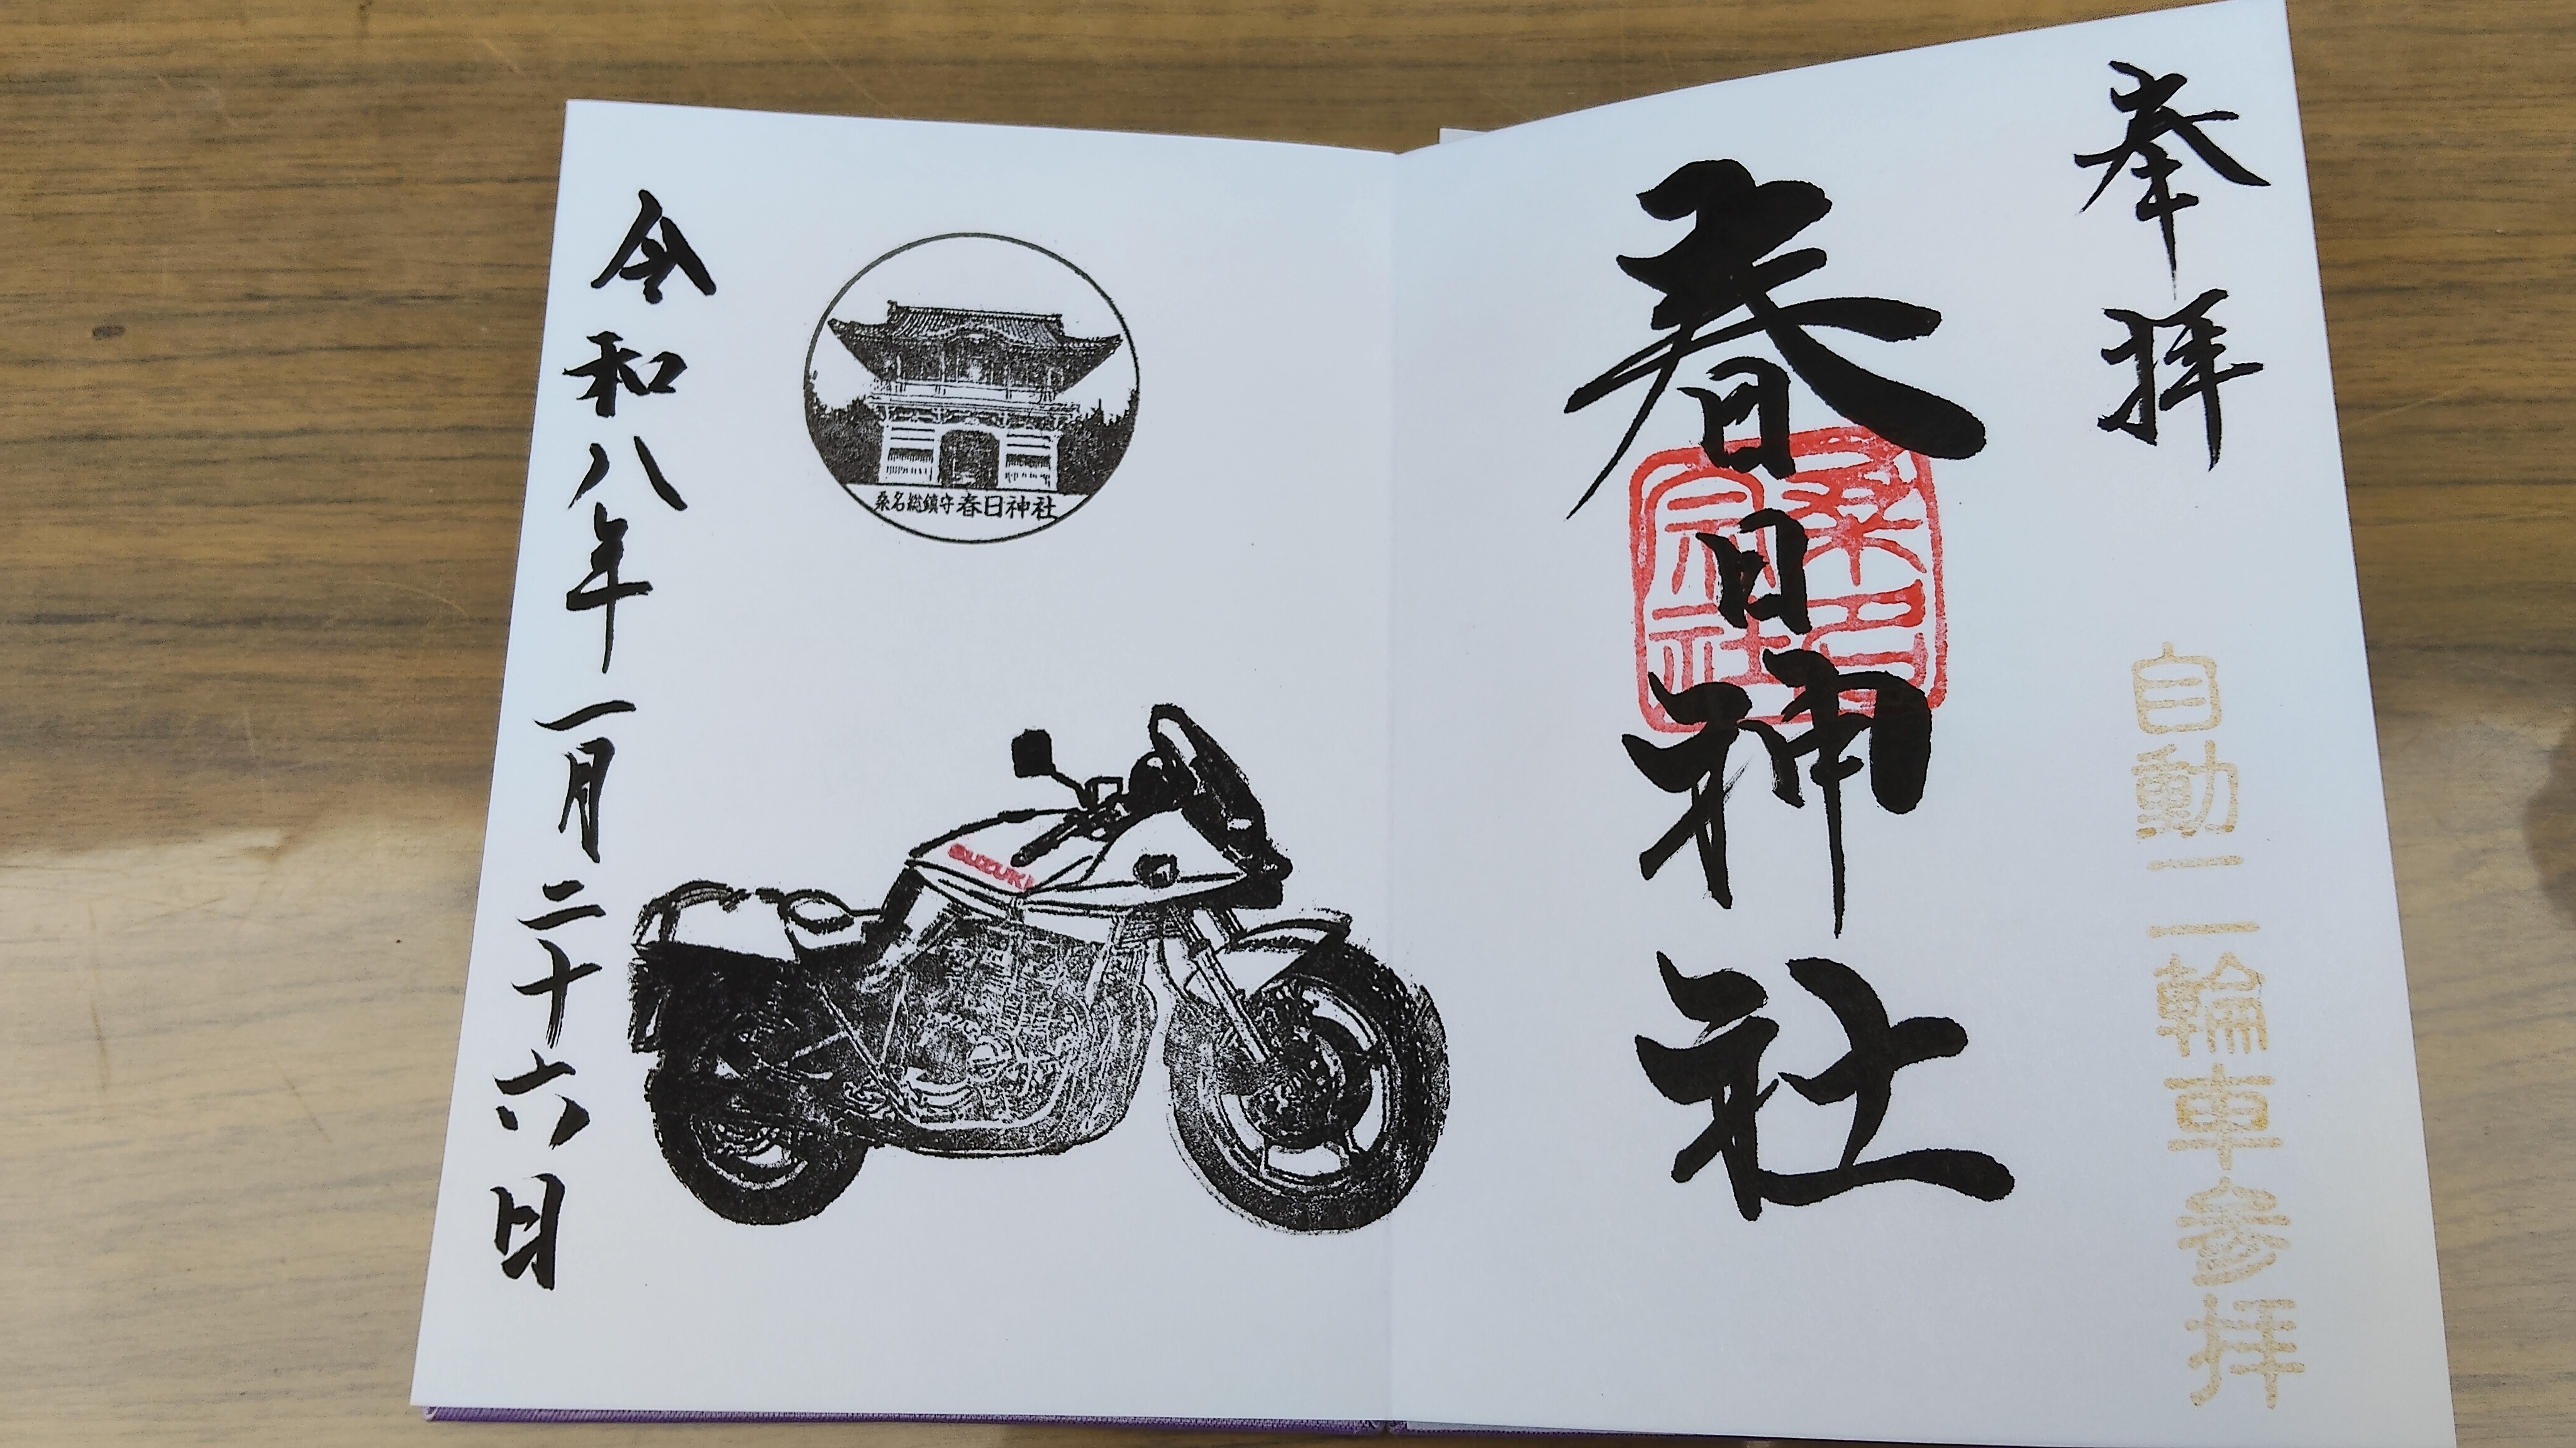 奉拝
自動二輪車参拝
春日神社
桑名宗社
桑名総鎮守 春日神社
SUZUKI
令和八年一月二十六日